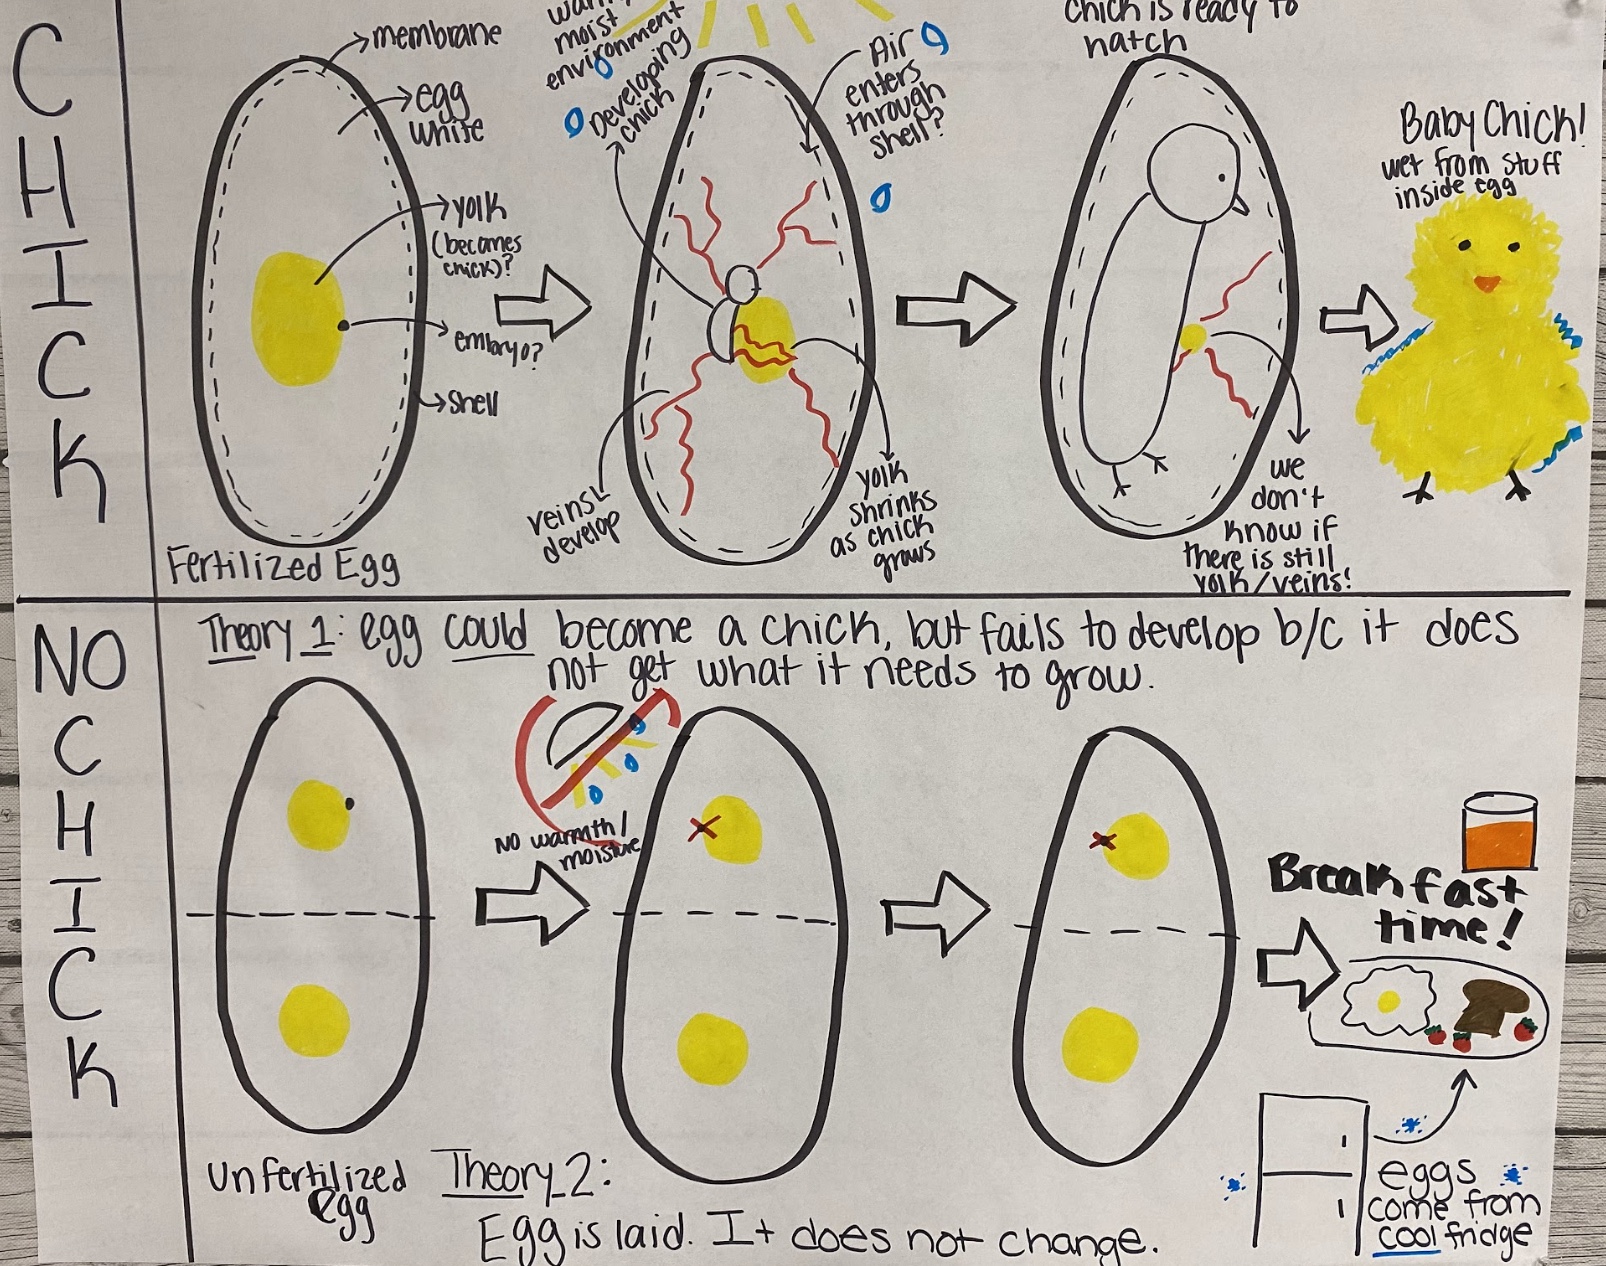 CHICK
membrane
egg
white
yolk
(becomes
chick)?
embryo?
shell
Fertilized Egg
warm,
moist
environment
Developing
chick
Air
enters
through
shell?
veins
develop
yolk
shrinks
as chick
grows
chick is ready to
hatch
we
don't
know if
there is still
yolk/veins!
Baby Chick!
wet from stuff
inside egg
NO
CHICK
Theory 1: egg could become a chick, but fails to develop b/c it does
not get what it needs to grow.
No warmth/
moisture
Breakfast
time!
unfertilized
egg
Theory 2:
Egg is laid. It does not change.
eggs
come from
cool fridge